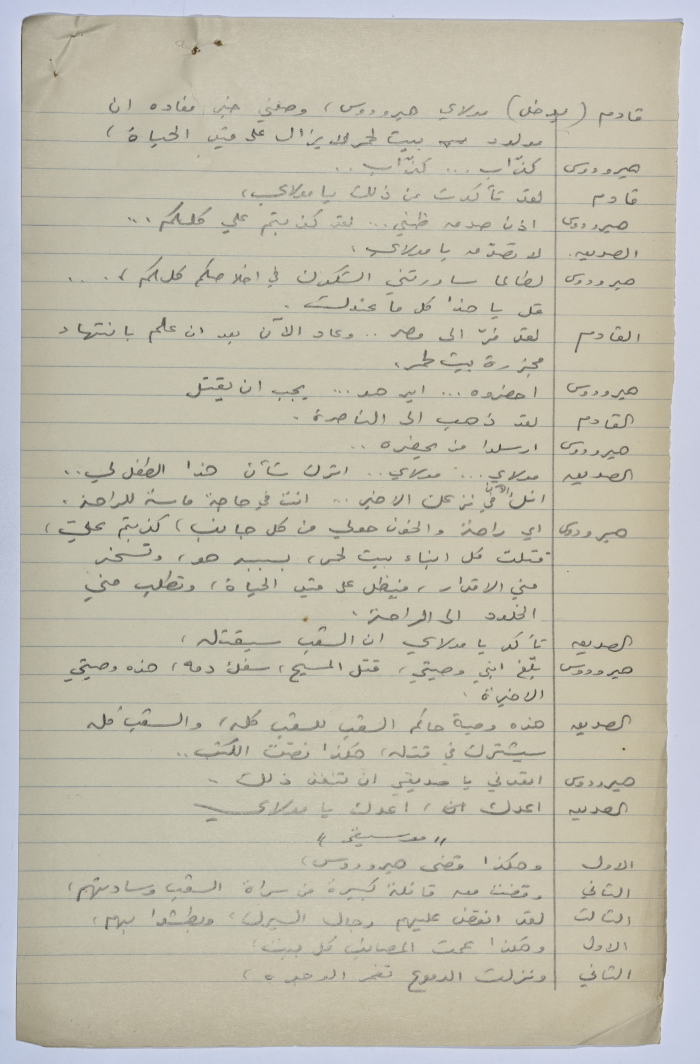 قادم (يدخل) مولاي هيرودوس، وصلني خبر مفاده ان
مولود بيت لحم لا يزال على قيد الحياة،
هيرودوس كذّاب... كذّاب..
قادم لقد تأكدت من ذلك يا مولاي،
هيرودوس اذن صدق ظني... لقد كذبتم علي كلكم...
الصديق. لا تصدّقه يا مولاي.
هيرودوس لطالما ساورتني الشكوك في اخلاصكم كلكم،....
قل يا هذا كل ما عندك.
القادم لقد فرّ الى مصر.. وعاد الآن بعد ان علم بانتهاء
مجزرة بيت لحم.
هيرودوس احضروه... اين هو... يجب ان يقتل
القادم لقد ذهب الى الناصرة.
هيرودوس ارسلوا من يحضره..
الصديق مولاي... مولاي.. اترك شأن هذا الطفل لي..
انك الآن في نزعك الاخير... انت في حاجة ماسة للراحة.
هيرودوس اي راحة والخونة حولي من كل جانب، كذبتم علي،
قتلت كل ابناء بيت لحم، بسببه هو، وتسخر
مني الاقدار، فيظل على قيد الحياة، وتطلب مني
الخلود الى الراحة.
الصديق تأكد يا مولاي ان الشعب سيقتله،
هيرودوس بلّغ ابني وصيتي، قتل المسيح، سفك دمه، هذه وصيتي
الاخيرة.
الصديق هذه وصية حاكم الشعب للشعب كله، والشعب كله
سيشترك في قتله، هكذا نصّت الكتب..
هيرودوس اتعدني يا صديقي ان تنفذ ذلك..
الصديق اعدك، اعدك يا مولاي
"موسيقى"
الاول وهكذا قضى هيرودوس،
الثاني وقضت معه قافلة كبيرة من سراة الشعب وسادتهم،
الثالث لقد انقض عليهم رجال السيرك، وبطشوا بهم،
الاول وهكذا عمت المصائب كل بيت،
الثاني ونزلت الدموع تغمر الوجوه،